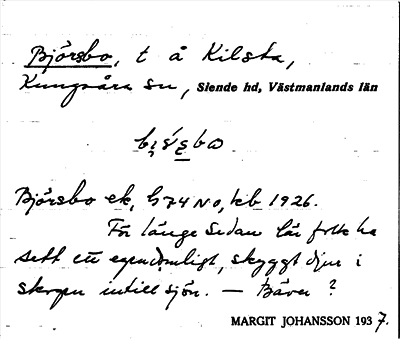 Björsbo, t å Kilsta,
Kungsåra sn, Siende hd, Västmanlands län
Björsbo ek, G 74 NO, kb 1926.
För länge sedan lär folk ha
sett ett egendomligt, skyggt djur i
skogen intill sjön. — Bäver?
MARGIT JOHANSSON 1937.